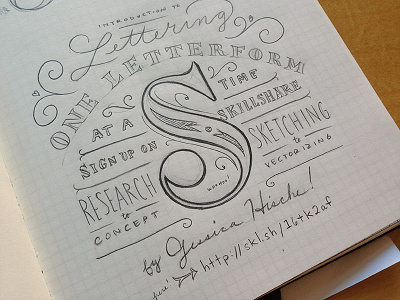 INTRODUCTION TO
Lettering
ONE LETTERFORM
AT A TIME
S
SIGN UP ON SKILLSHARE
RESEARCH to CONCEPT
SKETCHING to VECTORIZING
by Jessica Hische!
http://skl.sh/16tk2af